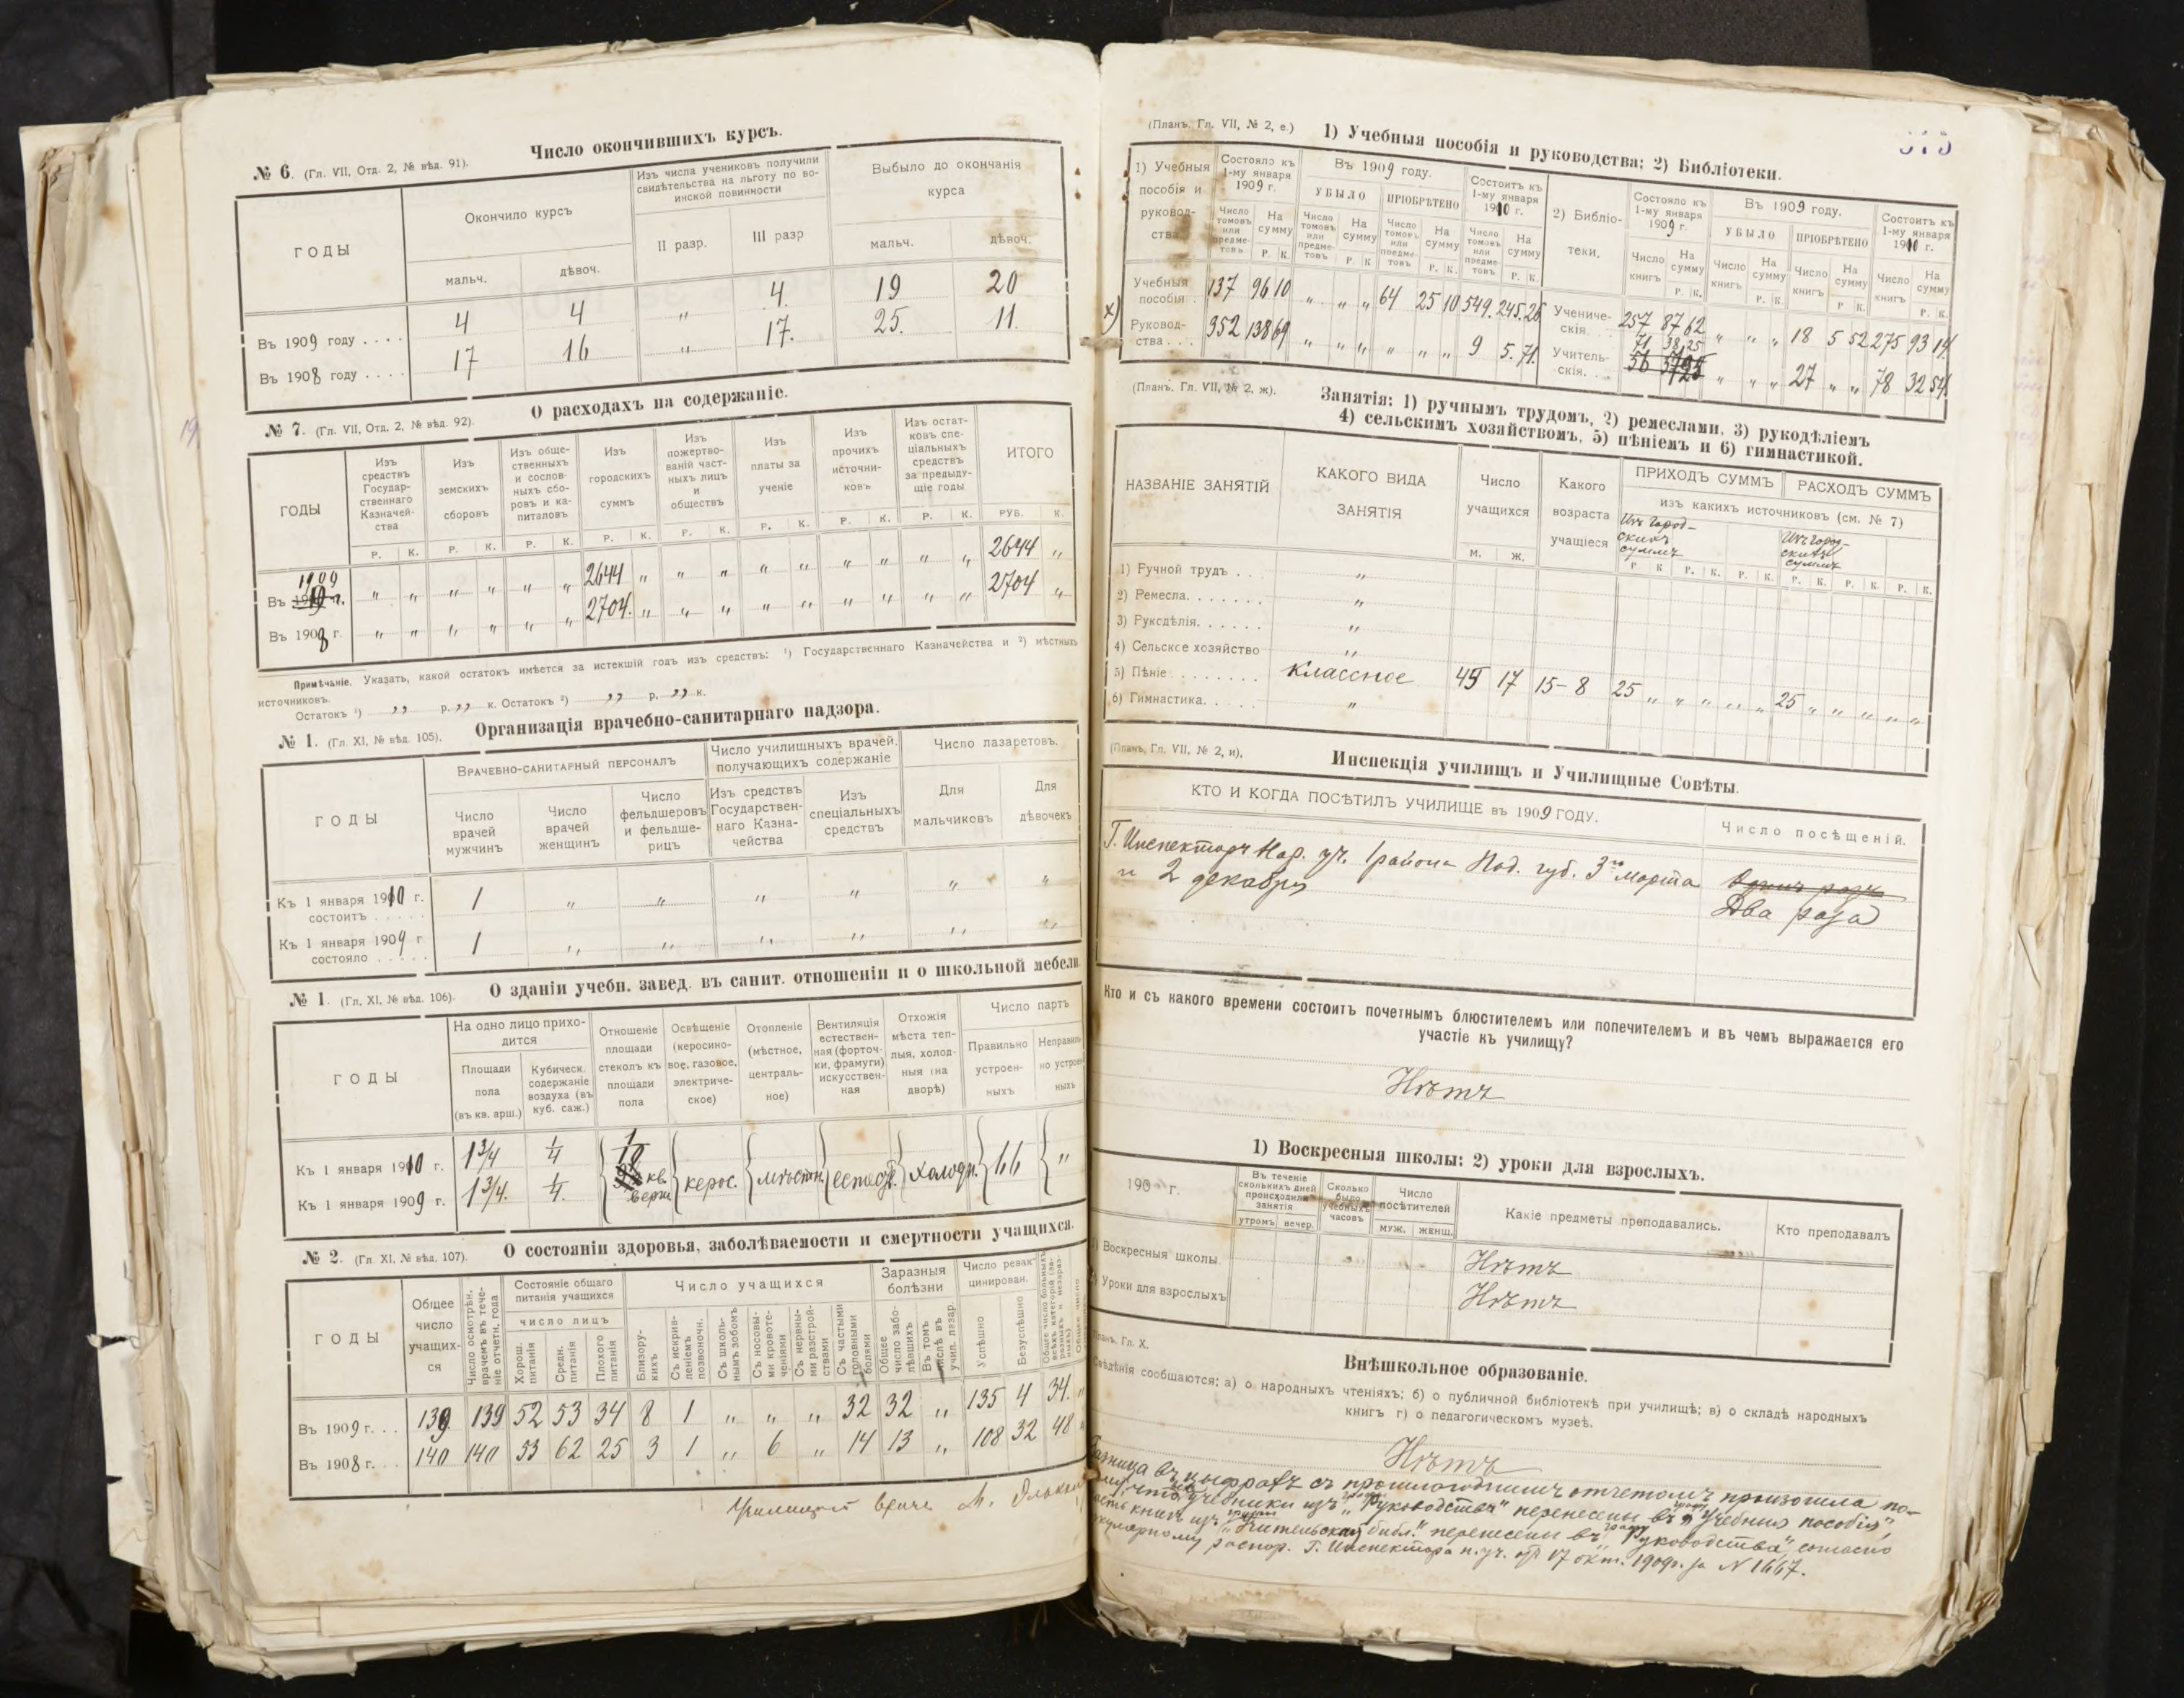 Число окончившихъ курсъ.
№ 6. (Гл. VII, Отд. 2, № вѣд. 91).
ГОДЫ
Окончило курсъ
Изъ числа учениковъ получили свидѣтельства на льготу по воинской повинности
Выбыло до окончанія курса
мальч. дѣвоч. II разр. III разр мальч. дѣвоч.
Въ 1909 году . . . . 4 4 " 4. 19 20
Въ 1908 году . . . . 17 16 " 17. 25. 11.
О расходахъ на содержаніе.
№ 7. (Гл. VII, Отд. 2, № вѣд. 92).
ГОДЫ
Изъ средствъ Государственнаго Казначейства
Изъ земскихъ сборовъ
Изъ общественныхъ и сословныхъ сборовъ и капиталовъ
Изъ городскихъ суммъ
Изъ пожертвованій частныхъ лицъ и обществъ
Изъ платы за ученіе
Изъ прочихъ источниковъ
Изъ остатковъ спеціальныхъ средствъ за предыдущіе годы
ИТОГО
Р. К. Р. К. Р. К. Р. К. Р. К. Р. К. Р. К. Р. К. РУБ. К.
Въ 1909 г. " " " " " " 2644 " " " " " " " " " 2644 "
Въ 1908 г. " " " " " " 2704. " " " " " " " " " 2704 "
Примѣчаніе. Указать, какой остатокъ имѣется за истекшій годъ изъ средствъ: ¹) Государственнаго Казначейства и ²) мѣстныхъ
источниковъ.
Остатокъ ¹) " р. " к. Остатокъ ²) " р. " к.
Организація врачебно-санитарнаго надзора.
№ 1. (Гл. XI, № вѣд. 105).
ГОДЫ
Врачебно-санитарный персоналъ
Число училищныхъ врачей, получающихъ содержаніе
Число лазаретовъ.
Число врачей мужчинъ
Число врачей женщинъ
Число фельдшеровъ и фельдшерицъ
Изъ средствъ Государственнаго Казначейства
Изъ спеціальныхъ средствъ
Для мальчиковъ
Для дѣвочекъ
Къ 1 января 1910 г. состоитъ . . . . . 1 " " " " " "
Къ 1 января 1909 г состояло . . . . . 1 " " " " " "
О зданіи учебн. завед. въ санит. отношеніи и о школьной мебели
№ 1. (Гл. XI, № вѣд. 106).
ГОДЫ
На одно лицо приходится
Площади пола (въ кв. арш.)
Кубическ. содержаніе воздуха (въ куб. саж.)
Отношеніе площади стеколъ къ площади пола
Освѣщеніе (керосиновое, газовое, электрическое)
Отопленіе (мѣстное, центральное)
Вентиляція естественная (форточки, фрамуги) искусственная
Отхожія мѣста теплыя, холодныя (на дворѣ)
Число партъ
Правильно устроенныхъ
Неправильно устроенныхъ
Къ 1 января 1910 г. 1 3/4 1/4
Къ 1 января 1909 г. 1 3/4. 1/4. керос. мѣстн. холодн. 66 "
О состояніи здоровья, заболѣваемости и смертности учащихся.
№ 2. (Гл. XI, № вѣд. 107).
ГОДЫ
Общее число учащихся
Число осмотрѣн. врачемъ въ теченіе отчетн. года
Состояніе общаго питанія учащихся
число лицъ
Хорош. питанія
Средн. питанія
Плохого питанія
Число учащихся
Близорукихъ
Съ искривленіемъ позвоночн.
Съ школьнымъ зобомъ
Съ носовыми кровотеченіями
Съ нервными разстройствами
Съ частыми головными болями
Заразныя болѣзни
Общее число заболѣвшихъ
Въ томъ числѣ въ учил. лазар.
Число ревакцинирован.
Успѣшно
Безуспѣшно
Въ 1909 г. . . 139. 139 52 53 34 8 1 " " " 32 32 " 135 4 34. "
Въ 1908 г. . . 140 140 53 62 25 3 1 " 6 " 14 13 " 108 32 48 "
врачъ
(Планъ. Гл. VII, № 2, е.)
1) Учебныя пособія и руководства; 2) Библіотеки.
1) Учебныя пособія и руководства
Состояло къ 1-му января 1909 г.
Въ 1909 году.
УБЫЛО ПРІОБРѢТЕНО
Состоитъ къ 1-му января 1910 г.
2) Библіотеки.
Состояло къ 1-му января 1909 г.
Въ 1909 году.
УБЫЛО ПРІОБРѢТЕНО
Состоитъ къ 1-му января 1910 г.
Число томовъ или предметовъ На сумму Р. К.
Число книгъ На сумму Р. К.
Учебныя пособія . 137 96 10 " " " 64 25 10 549. 245. 26
Ученическія. . 257 87 62 " " " 18 5 52 275 93 14
х)
Руководства . . . 352 138 69 " " " " " " 9 5. 71.
Учительскія. . . 71, 38,25 " " " 27 " " 78 32 54
(Планъ. Гл. VII, № 2, ж).
Занятія: 1) ручнымъ трудомъ, 2) ремеслами, 3) рукодѣліемъ
4) сельскимъ хозяйствомъ, 5) пѣніемъ и 6) гимнастикой.
НАЗВАНІЕ ЗАНЯТІЙ
КАКОГО ВИДА ЗАНЯТІЯ
Число учащихся м. ж.
Какого возраста учащіеся
ПРИХОДЪ СУММЪ РАСХОДЪ СУММЪ
изъ какихъ источниковъ (см. № 7)
Изъ городскихъ суммъ
Изъ городскихъ суммъ
1) Ручной трудъ . . . "
2) Ремесла. . . . . . . "
3) Рукодѣлія. . . . . . "
4) Сельское хозяйство "
5) Пѣніе . . . . . . . . классное 45 17 15-8 25 " " " " " 25 " " " " "
6) Гимнастика. . . . . "
(Планъ, Гл. VII, № 2, и).
Инспекція училищъ и Училищные Совѣты.
КТО И КОГДА ПОСѢТИЛЪ УЧИЛИЩЕ въ 1909 ГОДУ.
Число посѣщеній.
Г. Инспекторъ Нар. уч. 1 района Под. губ. 3го марта Одинъ разъ
и 2 декабря Два раза
Кто и съ какого времени состоитъ почетнымъ блюстителемъ или попечителемъ и въ чемъ выражается его
участіе къ училищу?
Нѣтъ
1) Воскресныя школы; 2) уроки для взрослыхъ.
190 г.
Въ теченіе сколькихъ дней происходили занятія
утромъ вечер.
Сколько было учебныхъ часовъ
Число посѣтителей
муж. женщ.
Какіе предметы преподавались.
Кто преподавалъ
Воскресныя школы. Нѣтъ
Уроки для взрослыхъ Нѣтъ
Гл. X.
Внѣшкольное образованіе.
Свѣдѣнія сообщаются: а) о народныхъ чтеніяхъ; б) о публичной библіотекѣ при училищѣ; в) о складѣ народныхъ
книгъ г) о педагогическомъ музеѣ.
Нѣтъ
Разница въ цыфрахъ съ прошлогоднимъ отчетомъ произошла по-
что всѣ учебники изъ графы "Руководства" перенесены въ графу "Учебныя пособія",
книгъ изъ графы "Учительская библ." перенесены въ графу "Руководства", согласно
распор. Г. Инспектора н. уч. отъ 17 окт. 1909 г. за № 1667.